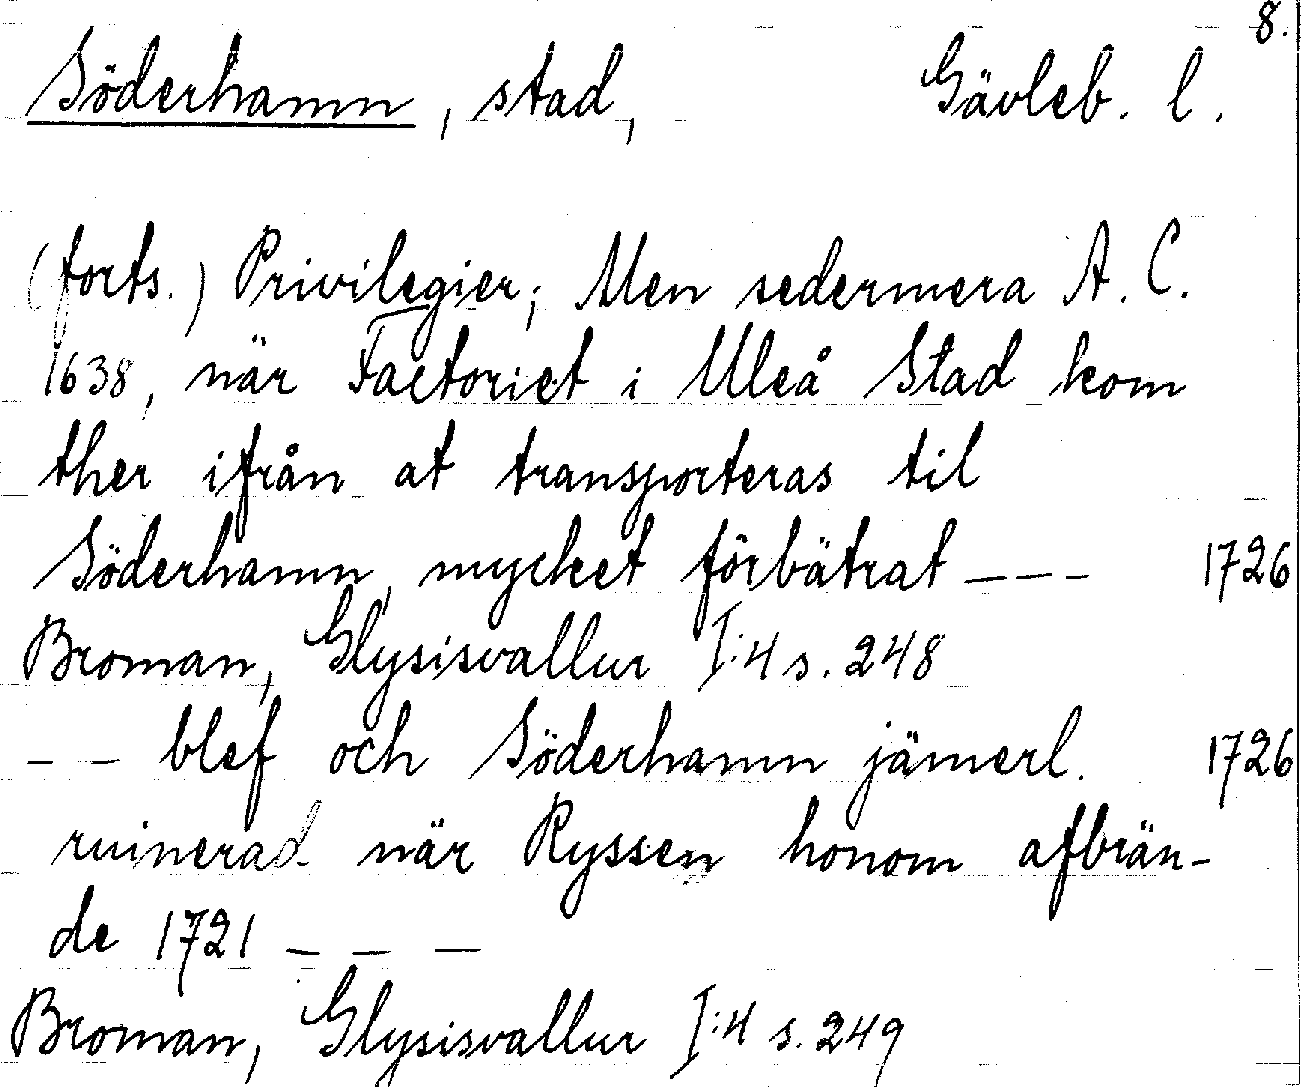 8.
Söderhamn, stad, Gävleb. l.
(forts.) Privilegier; Men sedermera A. C.
1638, när Factoriet i Uleå Stad kom
ther ifrån at transporteras til
Söderhamn, mycket förbätrat --- 1726
Broman, Glysisvallur I:4 s. 248
-- blef och Söderhamn jämerl. 1726
ruinerad när Ryssen honom afbrän-
de 1721 ---
Broman, Glysisvallur I:4 s. 249